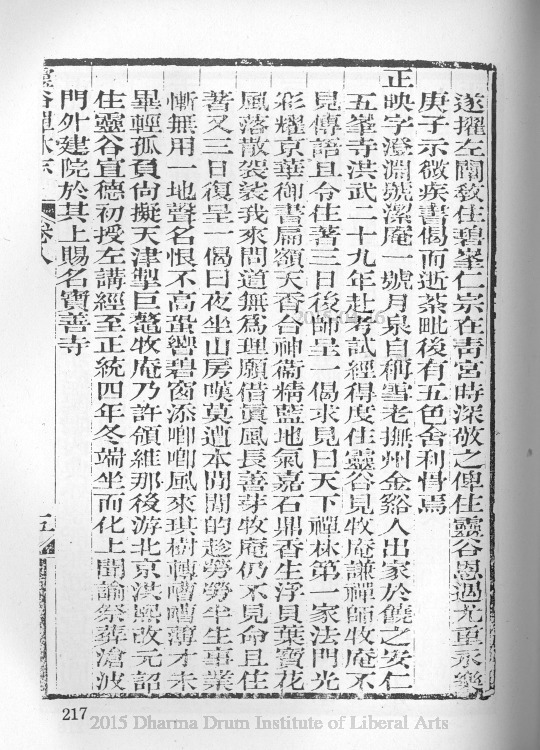 遂擢左闡教住碧峯仁宗在靑宮時深敬之俾住靈谷恩遇尤重永樂
庚子示微疾書偈而逝荼毗後有五色舍利骨焉
正映字澄淵號潔庵一號月泉自稱雪老撫州金谿人出家於饒之安仁
五峯寺洪武二十九年赴考試經得度住靈谷見牧庵謙禪師牧庵不
見傳語且令住著三日後師呈一偈求見曰天下禪林第一家法門光
彩耀京華御書扁額天香合神衞精藍地氣嘉石鼎香生浮貝葉寶花
風落散袈裟我來問道無爲理願借眞風長善芽牧庵仍不見命且住
著又三日復呈一偈曰夜坐山房嘆莫遭本閒閒的趁勞勞半生事業
慚無用一地聲名恨不高蛩響碧窗添唧唧風來琪樹轉嘈嘈薄才未
畢輕孤負尙擬天津掣巨鼇牧庵乃許領維那後游北京洪熙改元詔
住靈谷宣德初授左講經至正統四年冬端坐而化上聞諭祭葬滄波
門外建院於其上賜名寶善寺
靈谷禪林志 卷八 五
217
2015 Dharma Drum Institute of Liberal Arts